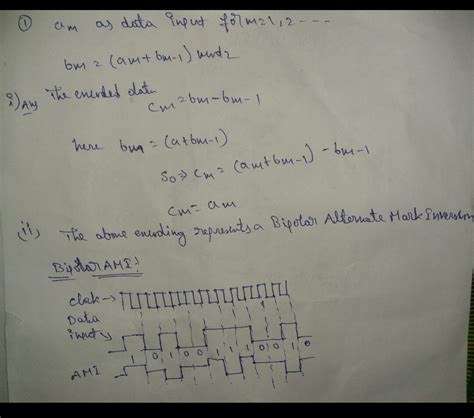 ① am as data input for m=1, 2 ----
bm = (am + bm-1) mod 2
i) Ans The encoded data
Cm = bm - bm - 1
here bm = (a + bm-1)
So ⇒ Cm = (am + bm-1) - bm-1
Cm = am
(ii) The above encoding represents a Bipolar Alternate Mark Inversion
Bipolar AMI:
Clock →
Data
inputs
1 0 1 0 0 1 1 1 0 0 1 0
AMI